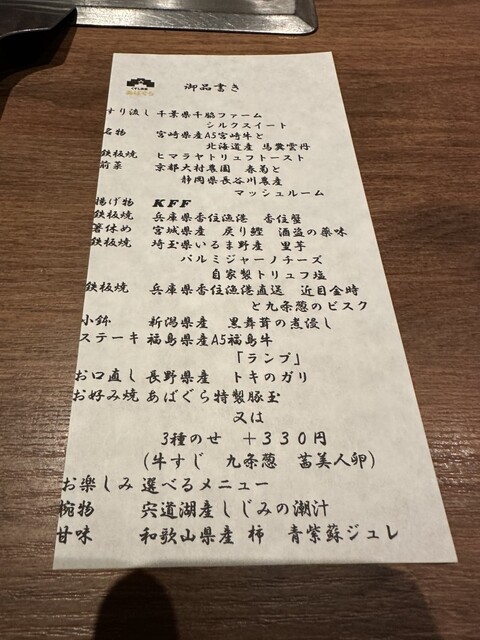 あばぐら
御品書き
すり流し 千葉県千脇ファーム
シルクスイート
名物 宮崎県産A5宮崎牛と
北海道産 馬糞雲丹
鉄板焼 ヒマラヤトリュフトースト
前菜 京都大村農園 春菊と
静岡県長谷川農産
マッシュルーム
揚げ物 KFF
鉄板焼 兵庫県香住漁港 香住蟹
箸休め 宮城県産 戻り鰹 酒盗の薬味
鉄板焼 埼玉県いるま野産 里芋
パルミジャーノチーズ
自家製トリュフ塩
鉄板焼 兵庫県香住漁港直送 近目金時
と九条葱のビスク
小鉢 新潟県産 黒舞茸の煮浸し
ステーキ 福島県産A5福島牛
「ランプ」
お口直し 長野県産 トキのガリ
お好み焼 あばぐら特製豚玉
又は
3種のせ +330円
(牛すじ 九条葱 茜美人卵)
お楽しみ 選べるメニュー
椀物 宍道湖産しじみの潮汁
甘味 和歌山県産 柿 青紫蘇ジュレ